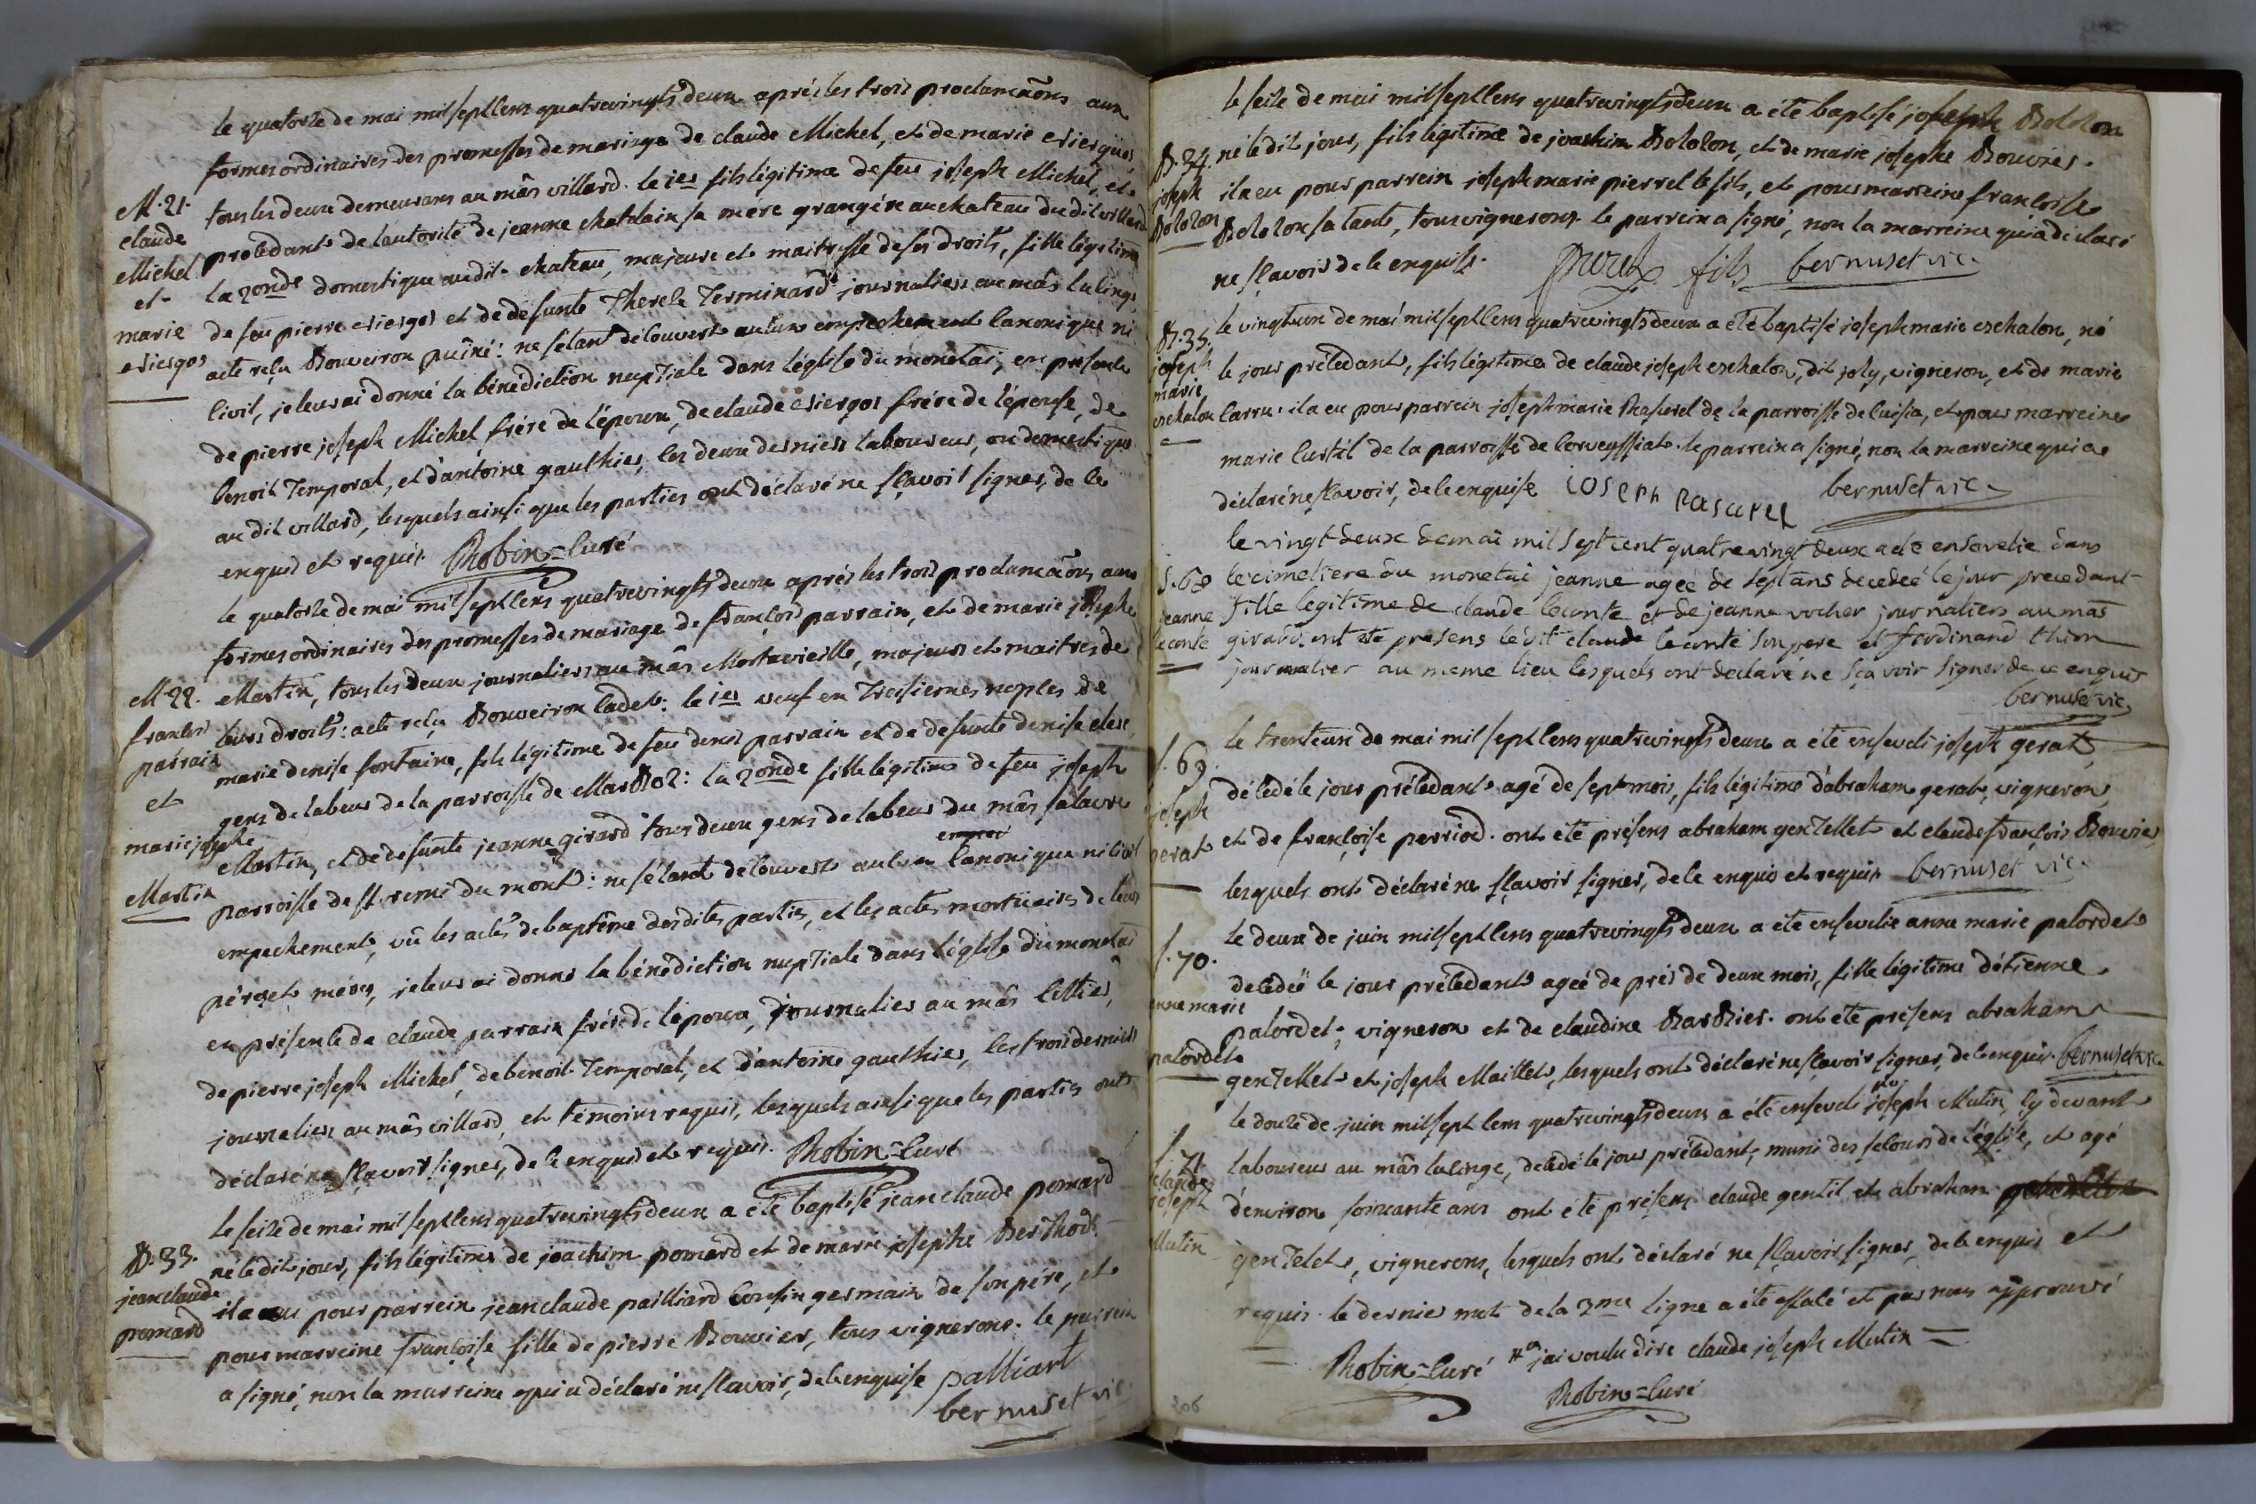 le quatorze de mai mil sept cens quatrevingts deux après les trois proclamaõns aux
formes ordinaires des promesses de mariage de claude Michel, et de marie
M. 21.
claude
Michel
et
marie
tous les deux demeurans au mâs villard. le 1er fils légitime de feu joseph Michel, et
procedant de l'autorité de jeanne chatelain sa mére grangére au chateau du dit villard
la 2onde domestique au dit chateau, majeure et maitresse de ses droits, fille légitime
de feu pierre et de defunte Therese Terminard journaliers au mâs la linge,
acte reçu Bouveiron puîné: ne s'étant découvert autun empechement canonique ni
civil, je leur ai donné la bénédiction nuptiale dans l'église du monetai, en presence
de pierre joseph Michel frére de l'époux, de claude frére de l'épouse, de
benoit Temporal, et d'antoine gauthier, les deux derniers laboureur, ou domestique
au dit villard, lesquels ainsi que les parties ont déclaré ne sçavoir signer, de ce
enquis et requis. Robin = Curé
le quatorze de mai mil sept cens quatrevingts deux après les trois proclamaõns aux
formes ordinaires des promesses de mariage de françois parrain, et de marie josephe
M. 22.
francois
parrain
et
marie josephe
Martin
Martin, tous les deux journaliers au mâs Mortavieille, majeurs et maitres de
leurs droits: acte reçu Bouveiron cadet: le 1er veuf en troisiemes noples de
marie denise fontaine, fils légitime de feu denis parrain et de defunte denise
gens de labeur de la parroisse de MarBoz: la 2onde fille légitime de feu joseph
Martin, et de defunte jeanne girard tous deux gens de labeur du mâs salavre
parroisse de st. remi du mont: ne s'étant découvert autun canonique ni civil
empechement, vû les actes de baptême des dites parties, et les actes mortuaires de leurs
péres et méres, je leur ai donné la bénédiction nuptiale dans l'église du monetai
en présence de claude parrain frére de l'époux, journalier au mâs
de pierre joseph Michel, de benoit Temporal, et d'antoine gauthier, les trois derniers
journaliers au mâs villard, et témoins requis, lesquels ainsi que les parties ont
déclaré ne sçavoir signer, de ce enquis et requis. Robin = Curé
le seize de mai mil sept cens quatrevingts deux a été baptisé jean claude pomard
B. 33.
jean claude
pomard
né le dit jour, fils légitime de joachim pomard et de marie josephe BerThod
il a eu pour parrein jean claude pailliard cousin germain de son pére, et
pour marreine françoise fille de pierre Bouvier, tous vignerons. le parrein
a signé, non la marreine qui a déclaré ne sçavoir, de ce enquise palliart
bernuset vic.
le seize de mai mil sept cens quatrevingts deux a été baptisé joseph Bolozon
B. 34.
joseph
Bolozon
né le dit jour, fils légitime de joachim Bolozon, et de marie josephe Bouvier.
il a eu pour parrein joseph marie pierrel le fils, et pour marreine françoise
Bolozon sa tante, tous vignerons. le parrein a signé, non la marreine qui a déclaré
ne sçavoir de ce enquise. fils bernuset vic.
B. 35.
joseph
marie
eschalon
le vingt un de mai mil sept cens quatrevingts deux a été baptisé joseph marie eschalon, né
le jour précedant, fils légitime de claude joseph eschalon, dit joly, vigneron, et de marie
carru. il a eu pour parrein joseph marie Rasurel de la parroisse de cuisia, et pour marreine
marie curtil de la parroisse de corveyssiat. le parrein a signé, non la marreine qui a
déclaré ne sçavoir, de ce enquise ioseph Rasurel bernuset vic.
le vingt deux de mai mil sept cent quatre vingt deux a été ensevelie dans
S. 68
jeanne
leconte
le cimetiere du monetai jeanne agée de sept ans decedeé le jour precedant
fille legitime de claude leconte et de jeanne vocher journaliers au mas
girard. ont ete presens le dit claude leconte son pere et ferdinand thion
journalier au meme lieu lesquels ont declaré ne sçavoir signer de ce enquis
bernuset vic.
le trente un de mai mil sept cens quatrevingts deux a été enseveli joseph gerat
S. 69.
joseph
gerat
décédé le jour précedant agé de sept mois, fils légitime d'abraham gerat, vigneron,
et de françoise perriod. ont été présens abraham genTellet et claude françois Bouvier,
lesquels ont déclaré ne sçavoir signer, de ce enquis et requis bernuset vic.
le deux de juin mil sept cens quatrevingts deux a été ensevelie anne marie palordet
S. 70.
anne marie
palordet
decedeé le jour précedant agée de prés de deux mois, fille légitime d'étienne
palordet, vigneron et de claudine BarBier. ont été présens abraham
genTellet et joseph Maillet, lesquels ont déclaré ne sçavoir signer, de ce enquis. bernuset vic.
le douze de juin mil sept cens quatrevingts deux a été enseveli joseph Mutin, cy devant
S. 71
claude
joseph
Mutin
laboureur au mâs la linge, decedé le jour précedant, muni des secours de l'église, et agé
d'environ soixante ans ont été présens claude gentil, et abraham
genTelet, vignerons, lesquels ont déclaré ne sçavoir signer, de ce enquis et
requis. le dernier mot de la 3me ligne a été effacé et par nous approuvé
Robin = Curé j'ai voulu dire claude joseph Mutin =
Robin = Curé
206